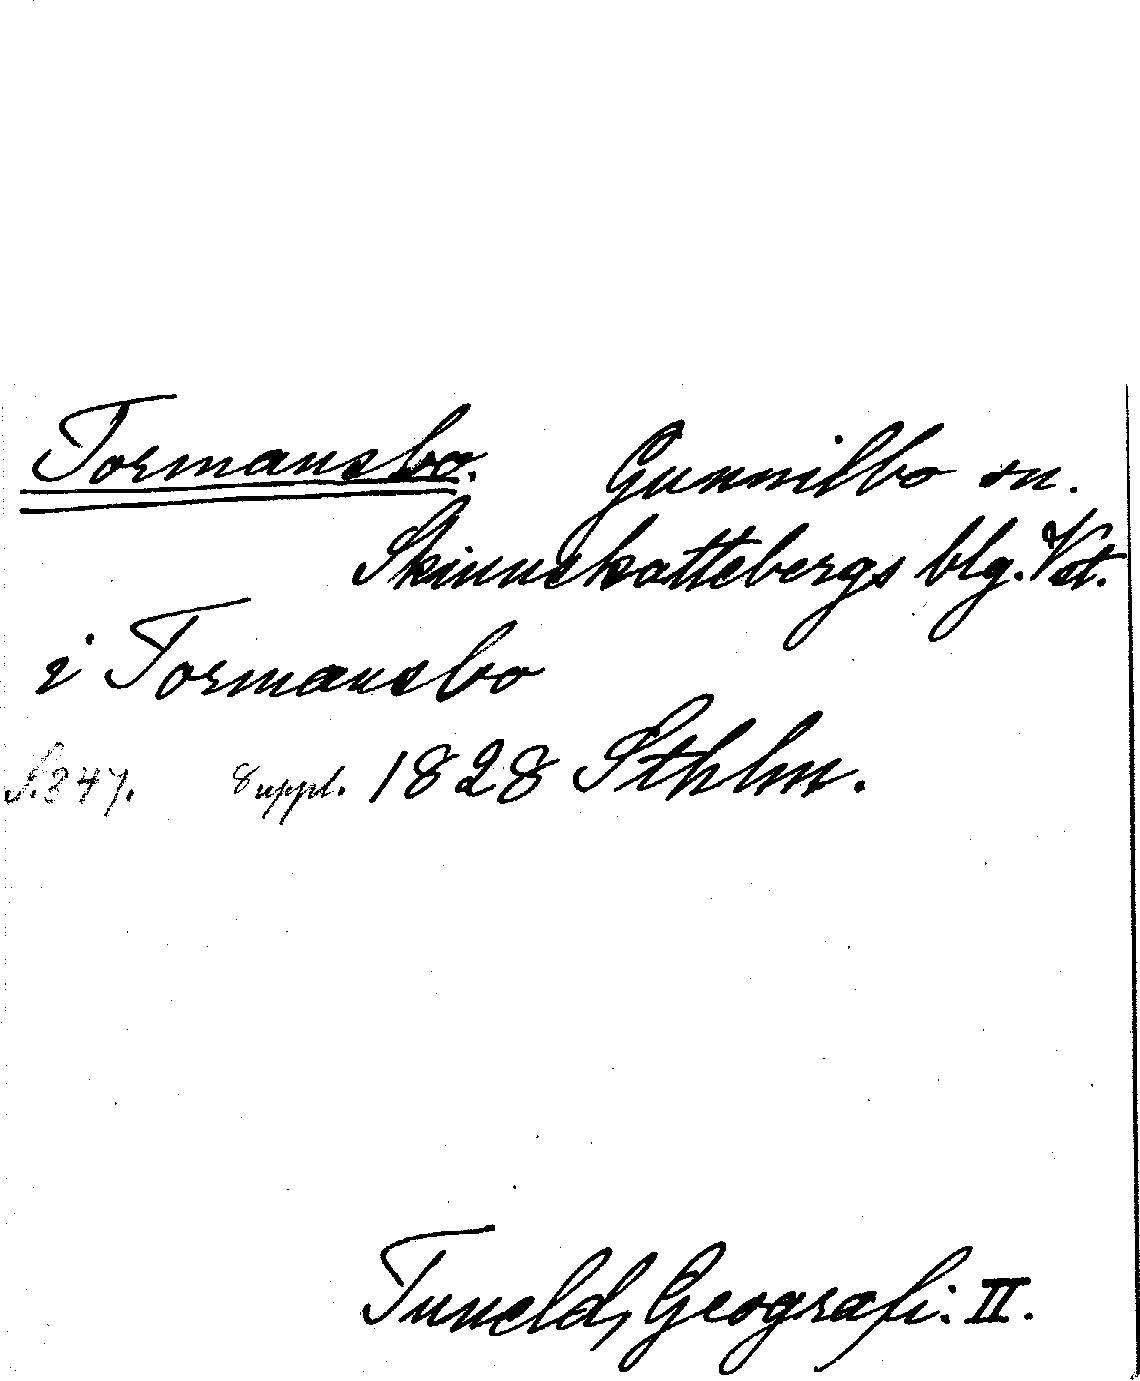 Tormansbo. Gunnilbo sn.
Skinnskattebergs blg. Vst.
i Tormansbo
S. 347. Suppl. 1828 Sthlm.
Tuneld, Geografi. II.